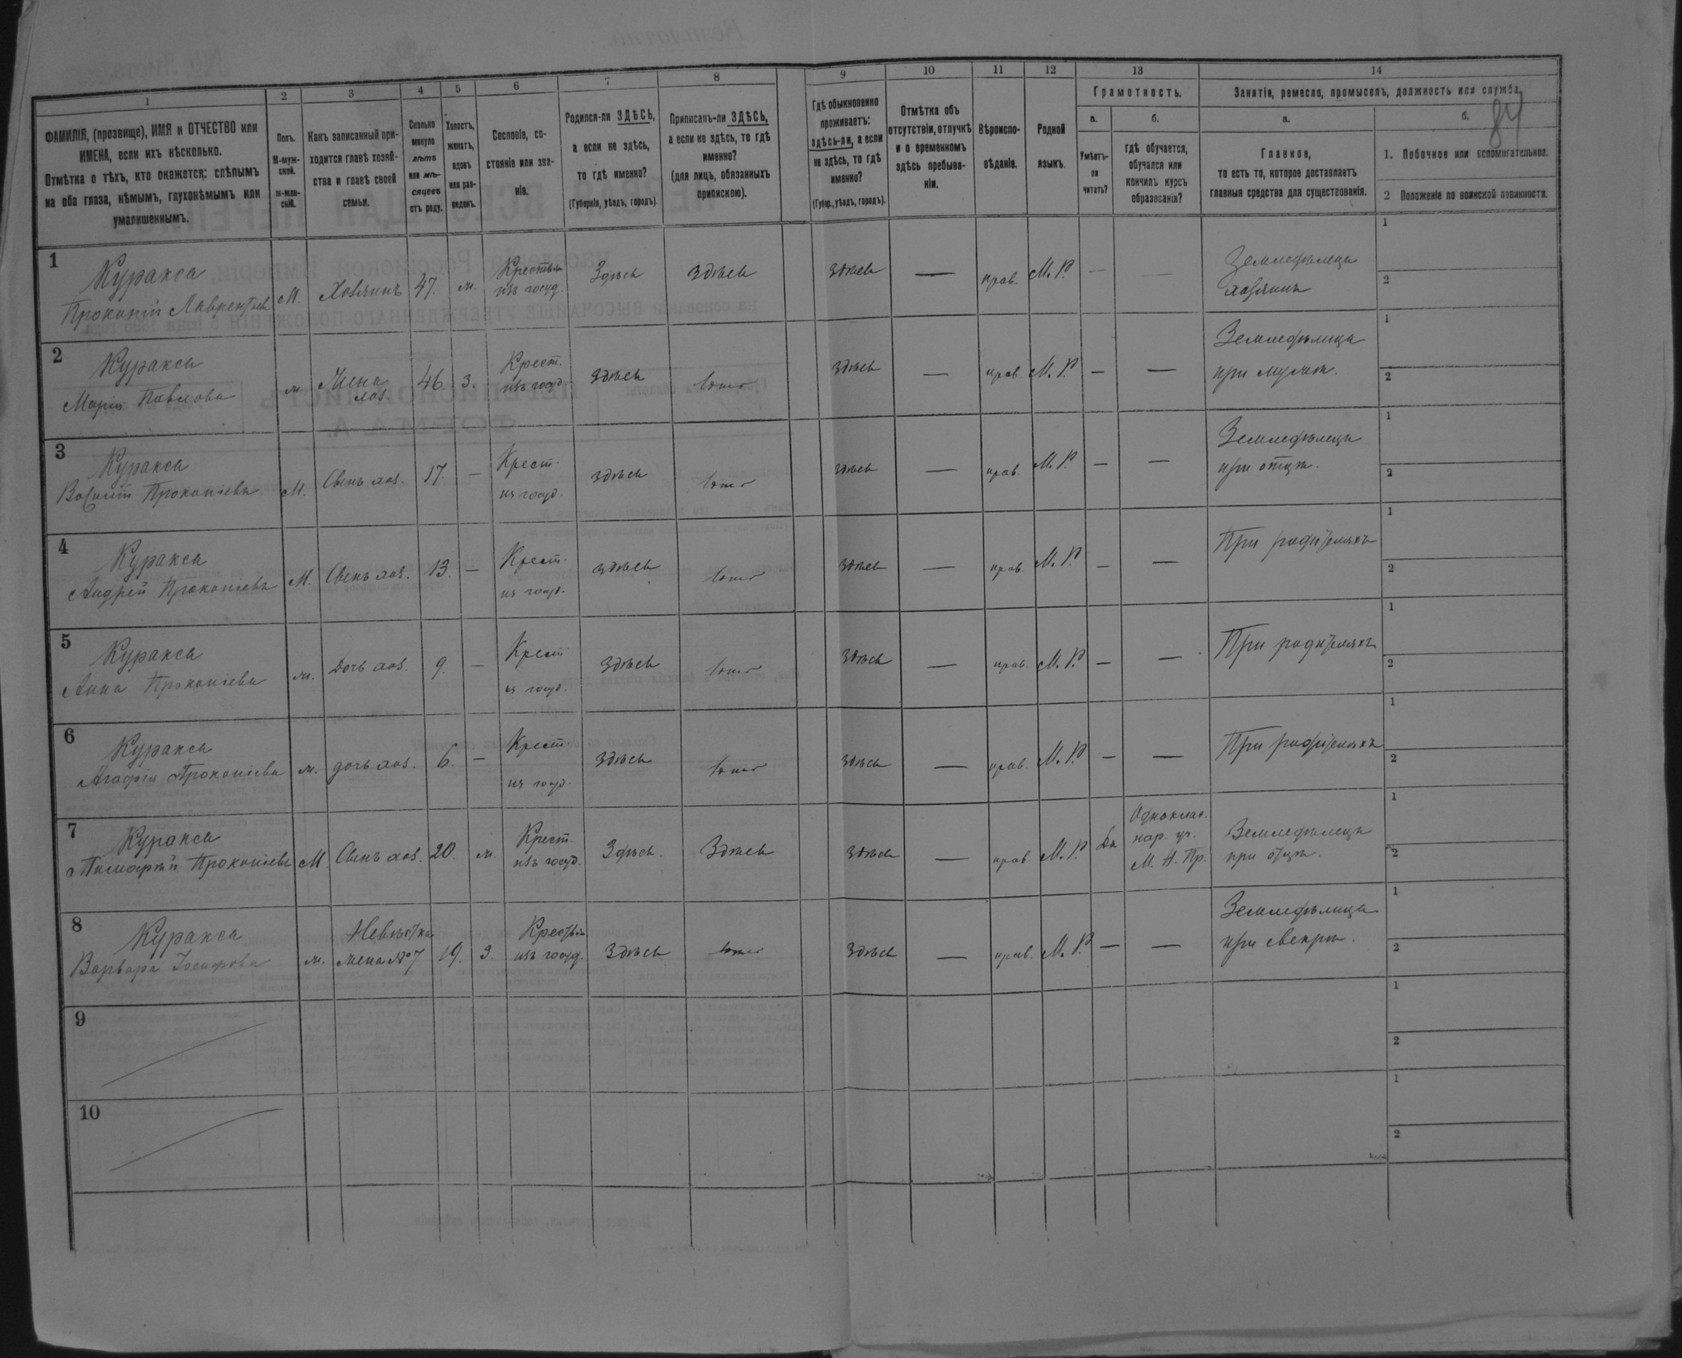 84
1 2 3 4 5 6 7 8 9 10 11 12 13 14
ФАМИЛІЯ, (прозвище), ИМЯ и ОТЧЕСТВО или
ИМЕНА, если ихъ нѣсколько.
Отмѣтка о тѣхъ, кто окажется: слѣпымъ
на оба глаза, нѣмымъ, глухонѣмымъ или
умалишеннымъ.
Полъ.
М-муж-
ской.
ж-жен-
скій.
Какъ записанный при-
ходится главѣ хозяй-
ства и главѣ своей
семьи.
Сколько
минуло
лѣтъ
или мѣ-
сяцевъ
отъ роду.
Холостъ,
женатъ,
вдовъ
или раз-
веденъ.
Сословіе, со-
стояніе или зва-
ніе.
Родился-ли ЗДѢСЬ,
а если не здѣсь,
то гдѣ именно?
(Губернія, уѣздъ, городъ).
Приписанъ-ли ЗДѢСЬ,
а если не здѣсь, то гдѣ
именно?
(для лицъ, обязанныхъ
припискою).
Гдѣ обыкновенно
проживаетъ:
здѣсь-ли, а если
не здѣсь, то гдѣ
именно?
(Губер., уѣздъ, городъ).
Отмѣтка объ
отсутствіи, отлучкѣ
и о временномъ
здѣсь пребыва-
ніи.
Вѣроиспо-
вѣданіе.
Родной
языкъ.
Грамотность.
а.
Умѣетъ-
ли
читать?
б.
Гдѣ обучается,
обучался или
кончилъ курсъ
образованія?
Занятіе, ремесло, промыселъ, должность или служба.
а.
Главное,
то есть то, которое доставляетъ
главныя средства для существованія.
б.
1. Побочное или вспомогательное.
2 Положеніе по воинской повинности.
1
Куракса
Прокопій Лаврентьев М. Хозяинъ 47. ж. Крестьян изъ госуд. Здѣсь здѣсь здѣсь — прав. М. Р. — — Земледѣлецъ
хозяинъ
1
2
2
Куракса
Марія Павлова ж. Жена хоз. 46. з. Крест. изъ госуд. здѣсь тоже здѣсь — прав. М. Р. — — Земледѣлица
при мужѣ.
1
2
3
Куракса
Василій Прокопіевъ М. Сынъ хоз. 17. — Крест. из госуд. здѣсь тоже здѣсь — прав. М. Р. — — Земледѣлецъ
при отцѣ.
1
2
4
Куракса
Андрей Прокопіевъ М. Сынъ хоз. 13. — Крест. из госуд. здѣсь тоже здѣсь — прав. М. Р. — — При родителяхъ
1
2
5
Куракса
Анна Прокопіева ж. Дочь хоз. 9. — Крест из госуд. здѣсь тоже здѣсь — прав. М. Р. — — При родителяхъ
1
2
6
Куракса
Агафія Прокопіева ж. дочь хоз. 6. — Крест. из госуд. здѣсь тоже здѣсь — прав. М. Р. — — При родителяхъ
1
2
7
Куракса
Тимофей Прокопіевъ М. Сынъ хоз. 20. ж. Крест. изъ госуд. Здѣсь. Здѣсь здѣсь — прав М. Р. Да Однокласс. нар. уч. М. Н. Пр. Земледѣлецъ
при отцѣ.
1
2
8
Куракса
Варвара Іосифова ж. Невѣстка жена №7 19. з. Крестьян изъ госуд. Здѣсь тоже Здѣсь — прав. М. Р. — — Земледѣлица
при свекрѣ.
1
2
9
1
2
10
1
2